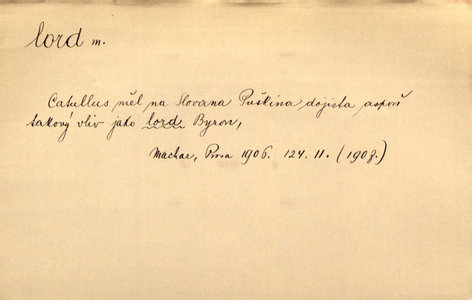 lord m.
Catullus měl na Slovana Puškina dojista aspoň
takový vliv jako lord Byron,
Machar, Prosa 1906. 124. 11. (1907.)